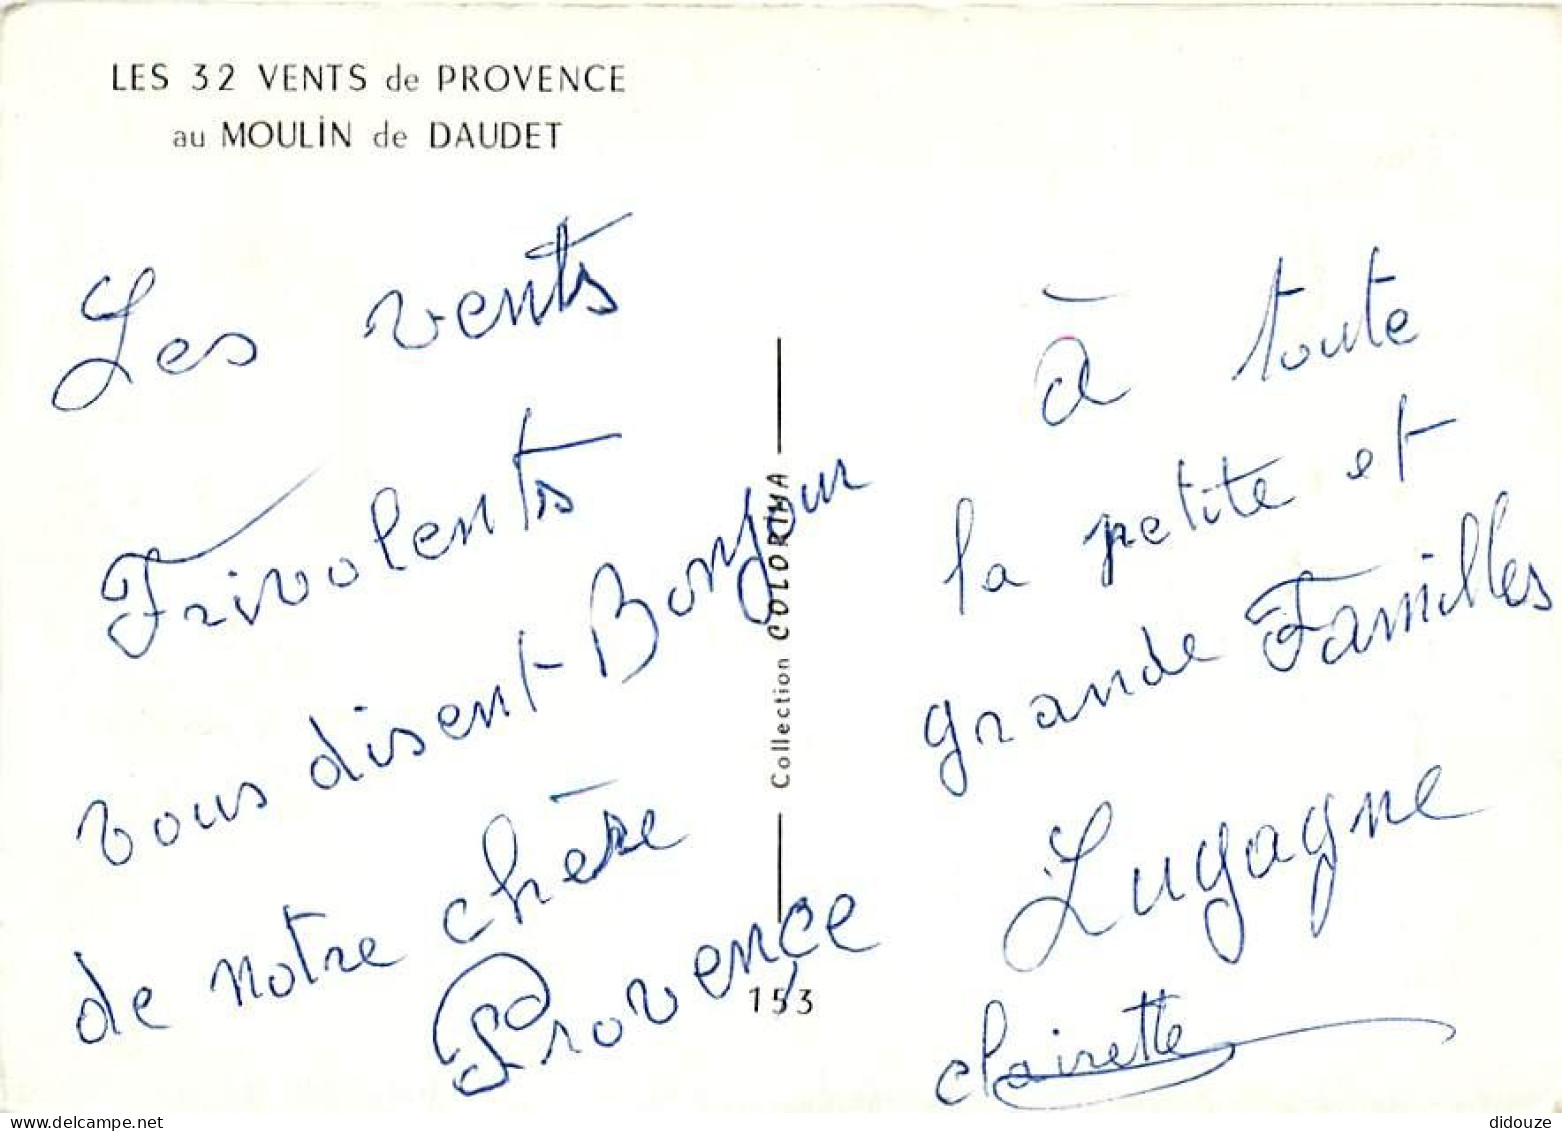 LES 32 VENTS de PROVENCE
au MOULIN de DAUDET
Les vents
Frivolents
vous disent Bonjour
de notre chère
Provençe
Collection COLORIMA
153
à toute
la petite et
grande Familles
Lugagne
Clairette
didouze